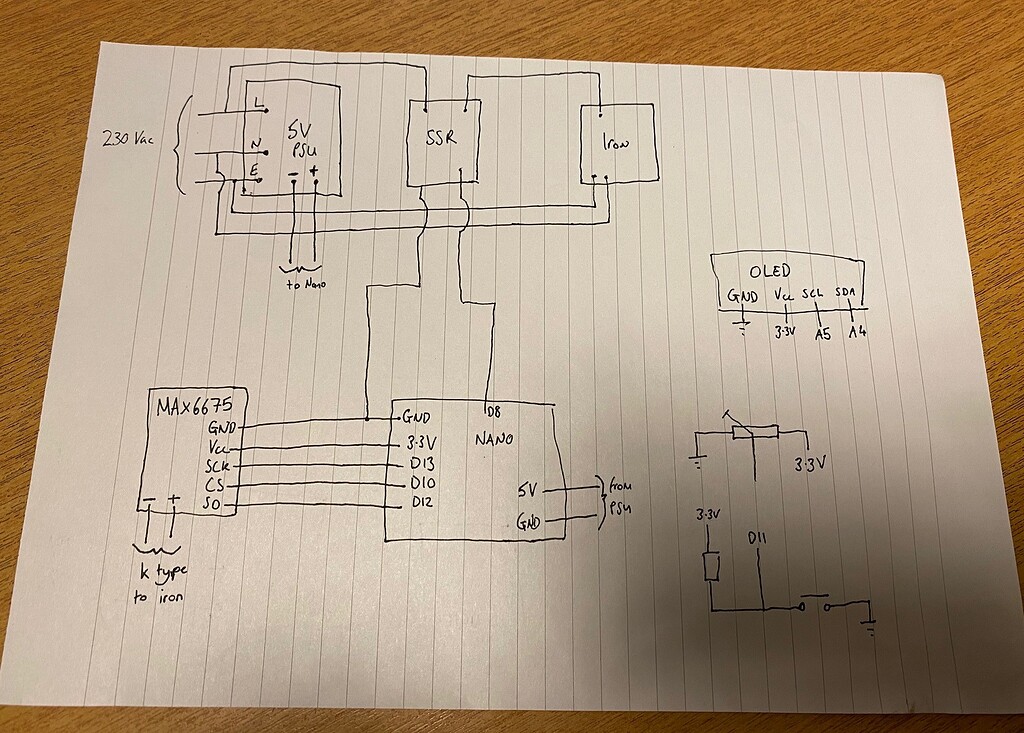 230 Vac
L
N
E
5V
PSU
- +
to Nano
SSR
Iron
OLED
GND Vcc SCL SDA
3.3V A5 A4
MAX6675
GND
Vcc
SCK
CS
SO
- +
k type
to iron
GND
3.3V
D13
D10
D12
D8
NANO
5V
GND
from
PSU
3.3V
3.3V
D11